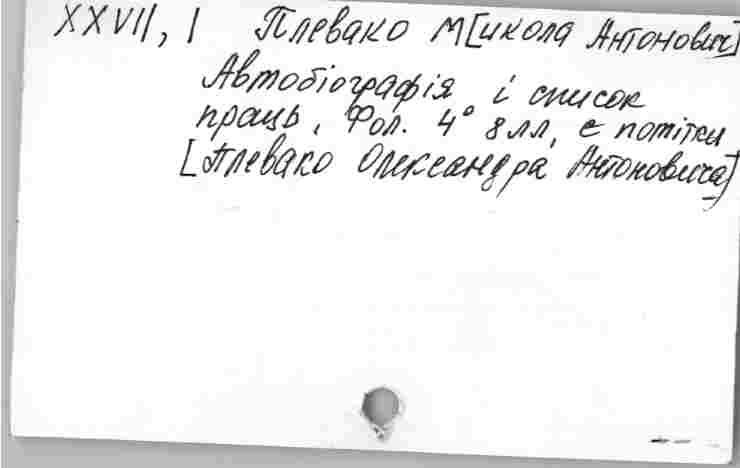 XXVII, 1 Плевако М[икола Антонович]
Автобіографія і список
праць. Фол. 4° 8 лл, є помітки
[Плевако Олександра Антоновича]